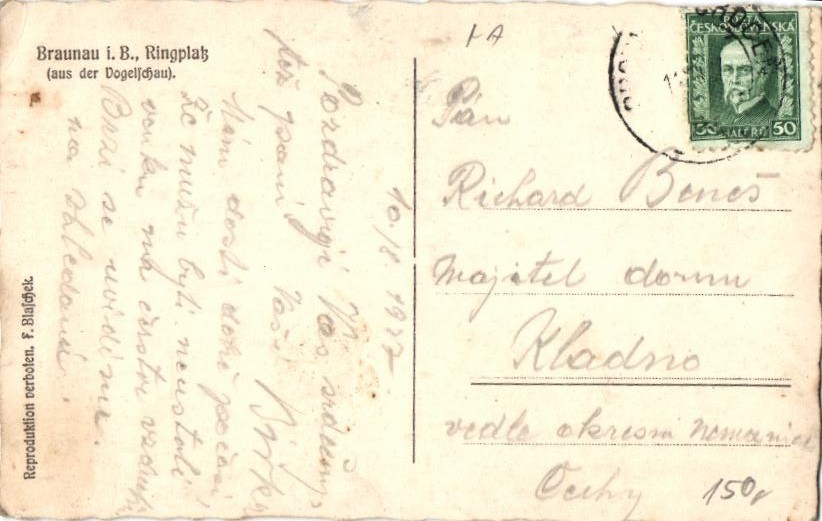 Braunau i. B., Ringplatz
(aus der Vogelschau).
10/8. 1927
Pozdravuji Vás srdečně
též paní Vaši
Mám dosti dobré počasí
že mušu býti neustále
venku na čerstvé vzduchu
Brzi se uvidíme.
na shledanou.
Reproduktion verboten. F. Blaschek.
ČESKOSLOVENSKÁ
50 HALÉŘŮ 50
Pán
Richard Beneš
majitel domu
Kladno
vedle okresní nemocnice
Čechy
150,